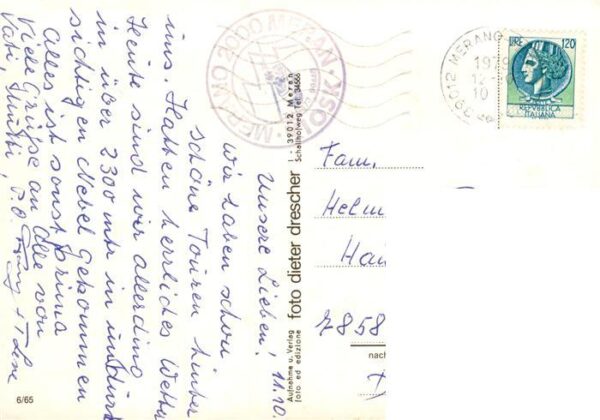 11.10.
Unsere Lieben!
wir haben schon
schöne Touren hinter
uns. Hatten herrliches Wetter
Heute sind wir allerdings
in über 2300 mtr in undurch
sichtigen Nebel gekommen
alles ist sonst prima
Viele Grüsse an Alle von
Vati, Mutti,
6/65
Aufnahme u. Verlag
foto ed edizione
foto dieter drescher
I - 39012 Meran
Schallhofweg Tel. 34566
MERANO 2000 MERAN
KIOSK
39012 MERANO
197
12-
10
LIRE 120
REPVBBLICA
ITALIANA
Fam.
Helm
Hau
7858
nach